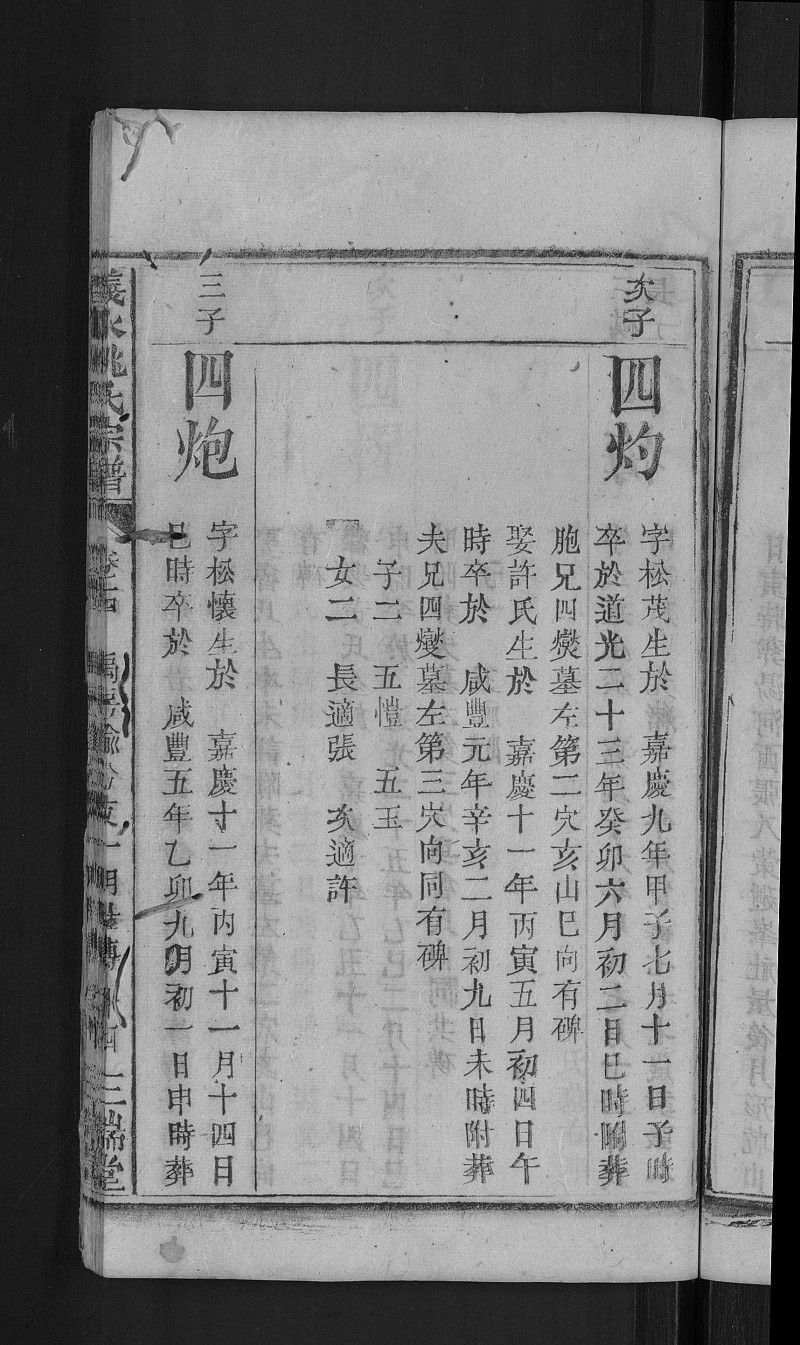 次子
四灼
字松茂生於 嘉慶九年甲子七月十一日子時
卒於道光二十三年癸卯六月初二日巳時附葬
胞兄四燮墓左第二穴亥山巳向有碑
娶許氏生於 嘉慶十一年丙寅五月初四日午
時卒於 咸豐元年辛亥二月初九日未時附葬
夫兄四燮墓左第三穴向同有碑
子二 五愷 五玉
女二 長適張 次適許
三子
四炮
字松懷生於 嘉慶十一年丙寅十一月十四日
巳時卒於 咸豐五年乙卯九月初一日申時葬
義水姚氏宗譜 卷之四 三瑞堂